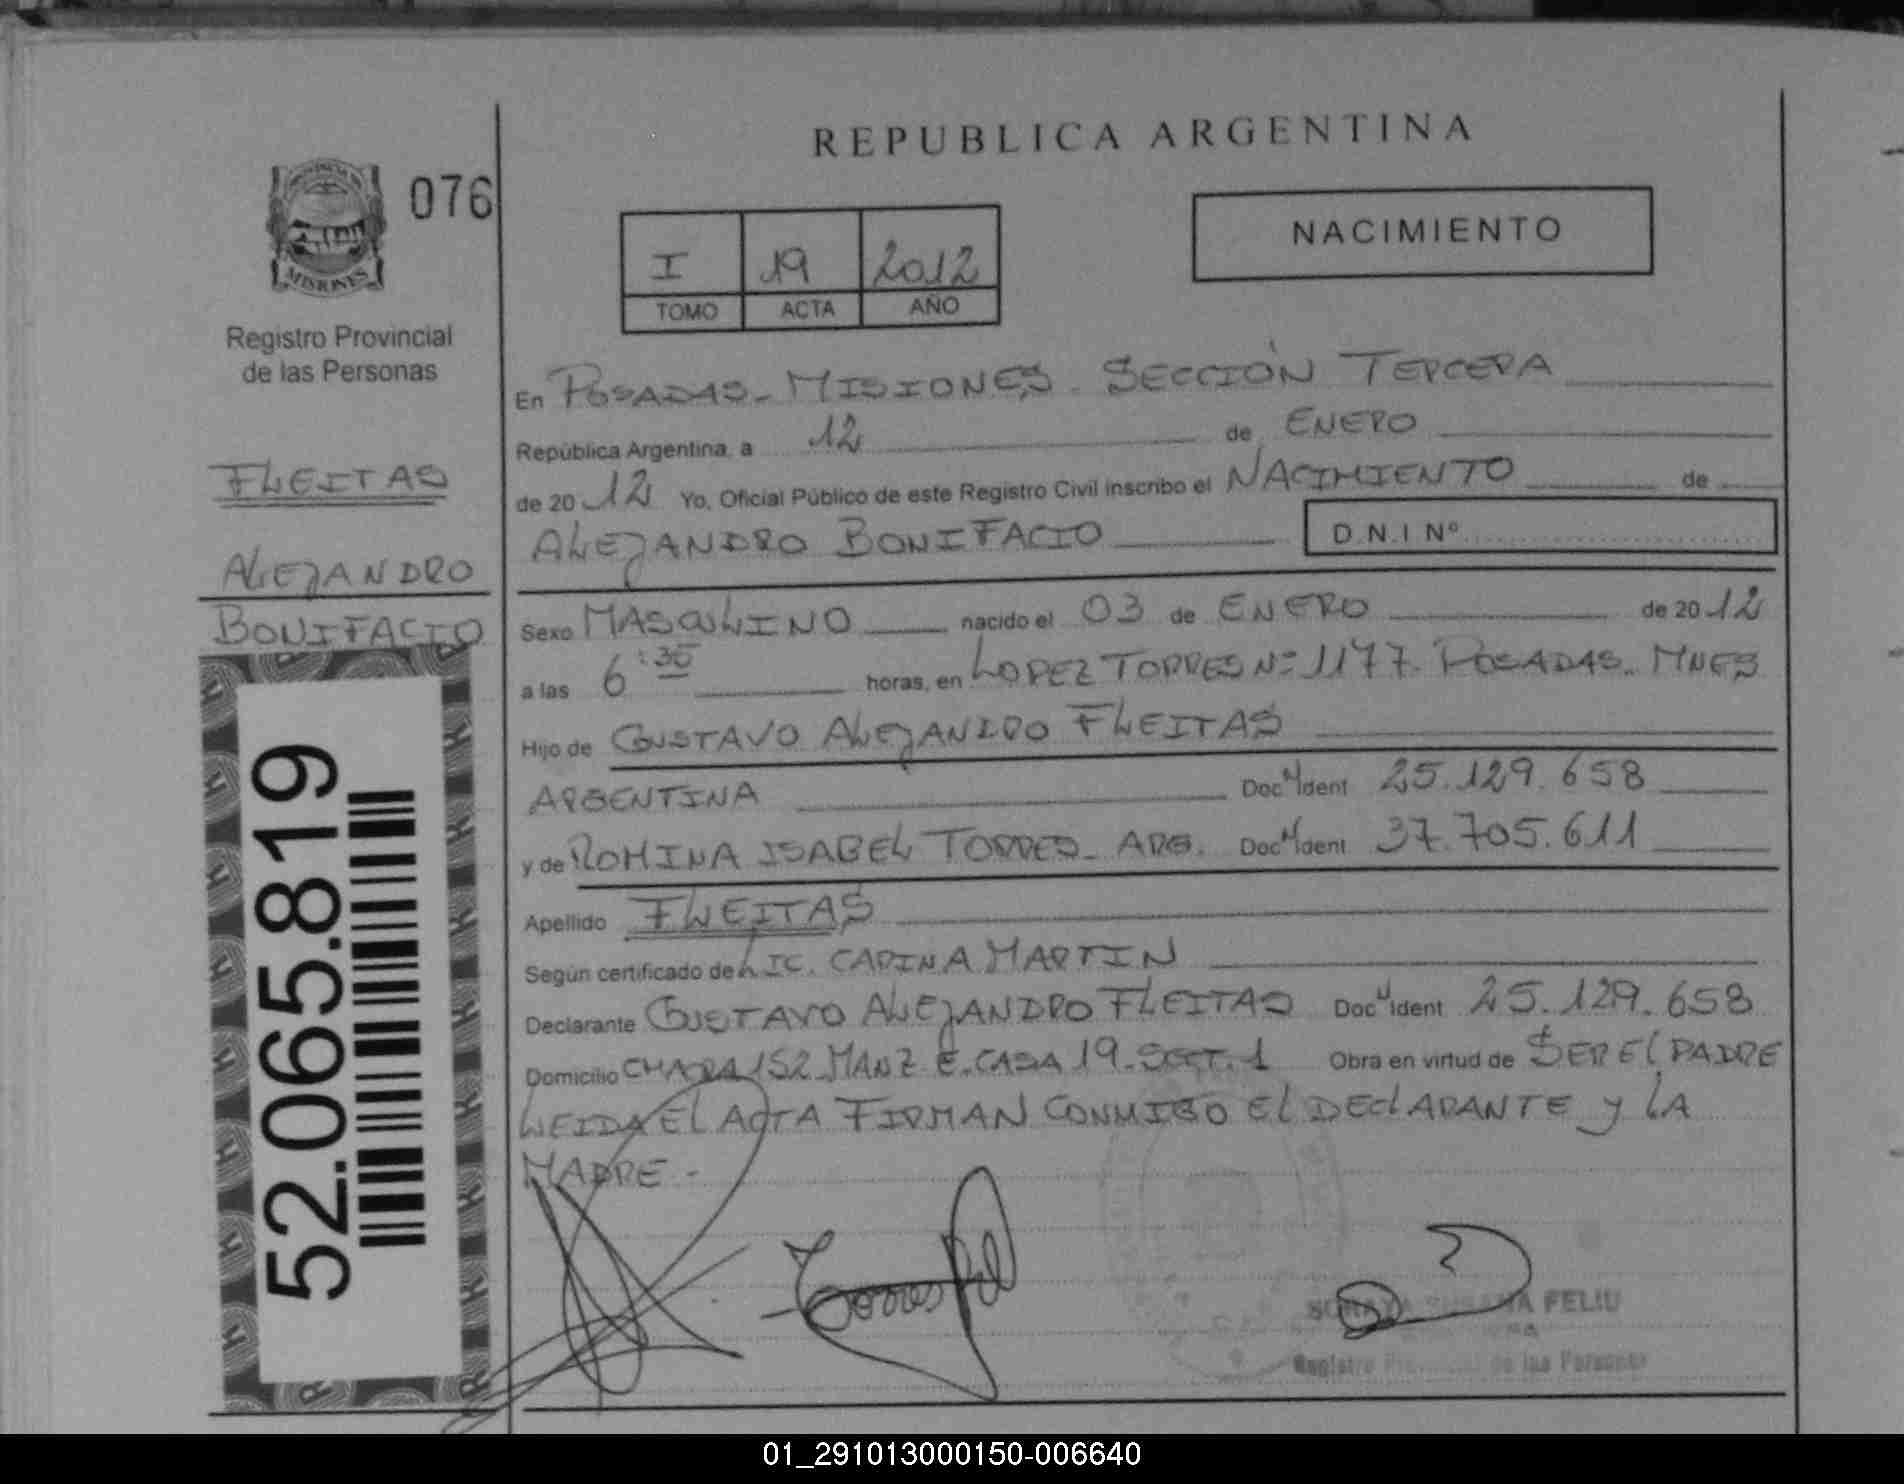 REPUBLICA ARGENTINA
076
MISIONES
Registro Provincial
de las Personas
NACIMIENTO
I 19 2012
TOMO ACTA AÑO
En POSADAS - MISIONES - SECCIÓN TERCERA
República Argentina, a 12 de ENERO
de 20 12 Yo, Oficial Público de este Registro Civil inscribo el NACIMIENTO de
ALEJANDRO BONIFACIO D.N.I Nº
FLEITAS
ALEJANDRO
BONIFACIO
52.065.819
Sexo MASCULINO nacido el 03 de ENERO de 20 12
a las 6:30 horas, en LOPEZ TORRES Nº 1177. POSADAS. MNES
Hijo de GUSTAVO ALEJANDRO FLEITAS
ARGENTINA Doc Ident 25.129.658
y de ROMINA ISABEL TORRES - ARG. Doc Ident 37.705.611
Apellido FLEITAS
Según certificado de LIC. CARINA MARTIN
Declarante GUSTAVO ALEJANDRO FLEITAS Doc Ident 25.129.658
Domicilio CHACRA 152 MANZ E. CASA 19 - SECT. 1 Obra en virtud de SER EL PADRE
LEIDA EL ACTA FIRMAN CONMIGO EL DECLARANTE y LA
MADRE -
Torres
SUSANA FELIU
Registro Provincial de las Personas
01_291013000150-006640